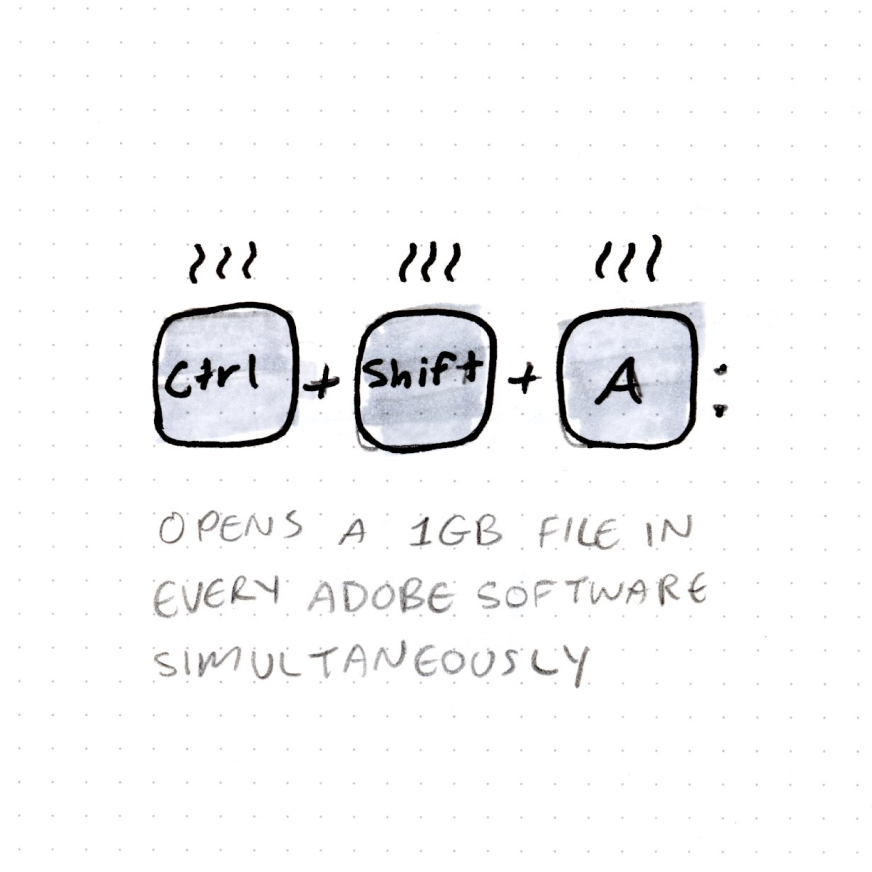 Ctrl + Shift + A :
OPENS A 1GB FILE IN
EVERY ADOBE SOFTWARE
SIMULTANEOUSLY